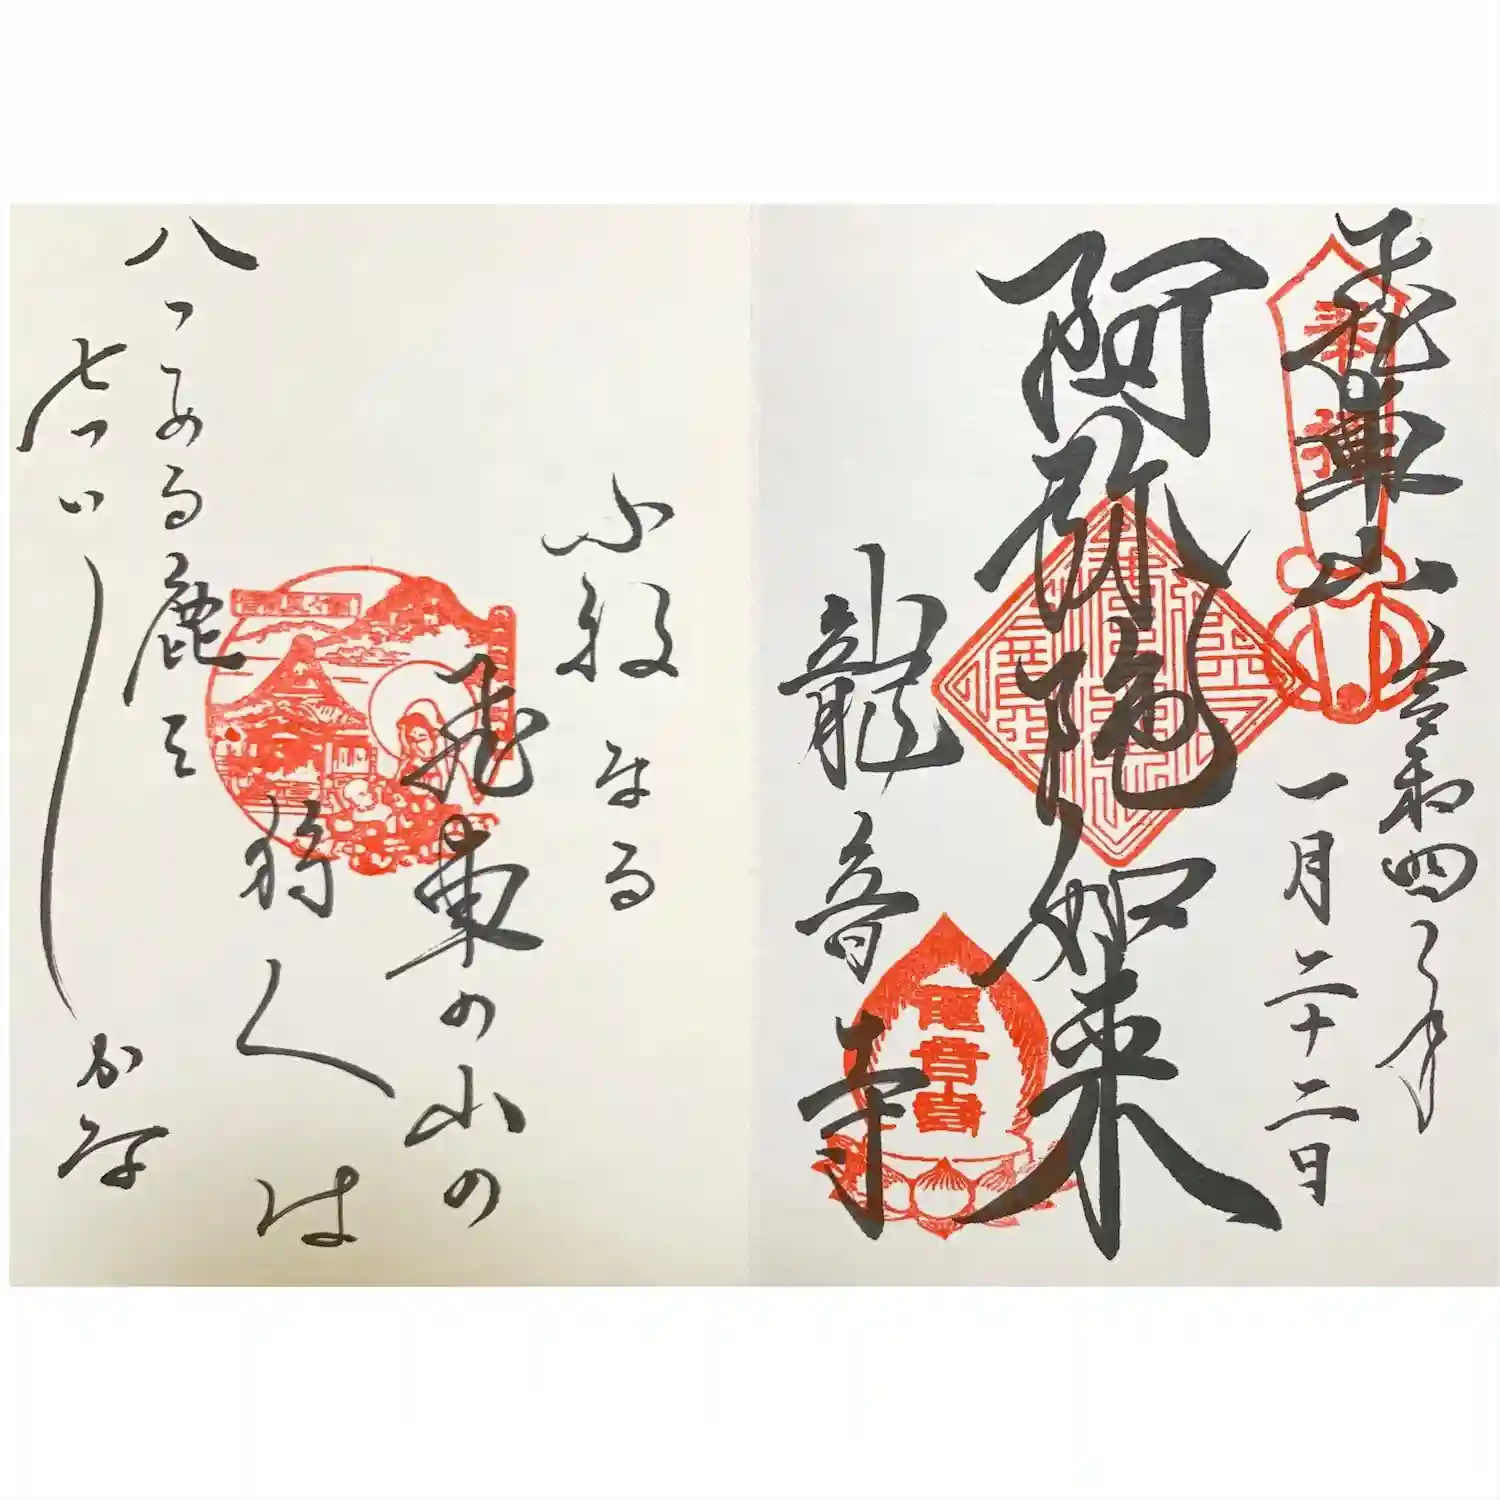 飛車山
奉拝
令和四年
一月二十二日
阿弥陀如来
龍音寺
小牧なる
飛車の山の
狩人は
八つある鹿を
七ついしかな